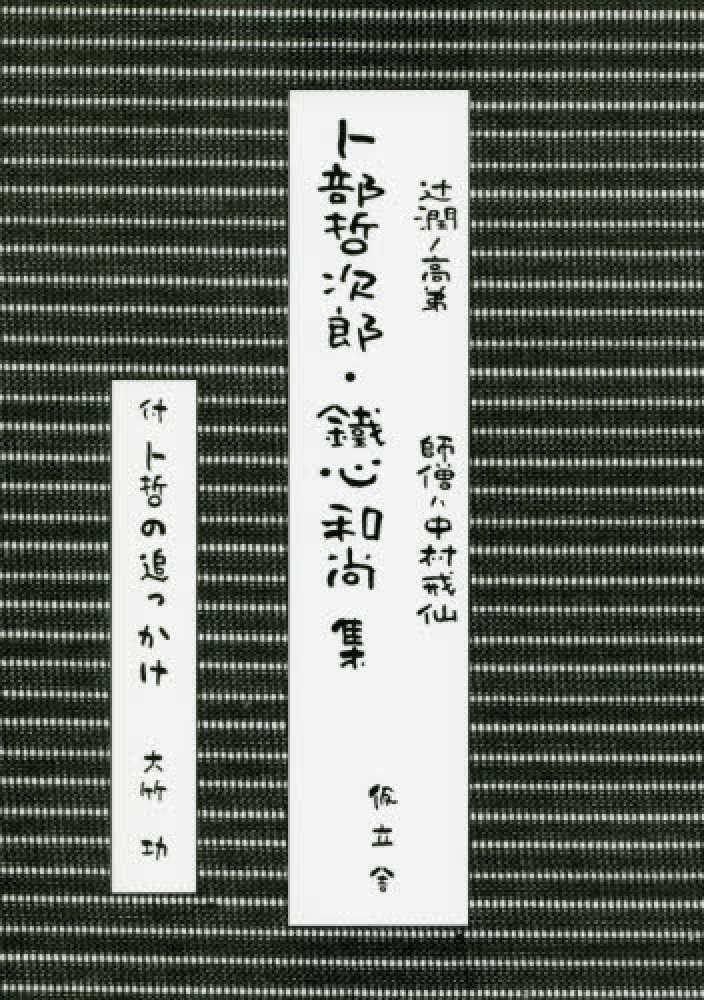 辻潤ノ高弟　師僧ハ中村戒仙
卜部哲次郎・鐵心和尚 集
仮立舎
付 卜哲の追っかけ　大竹 功